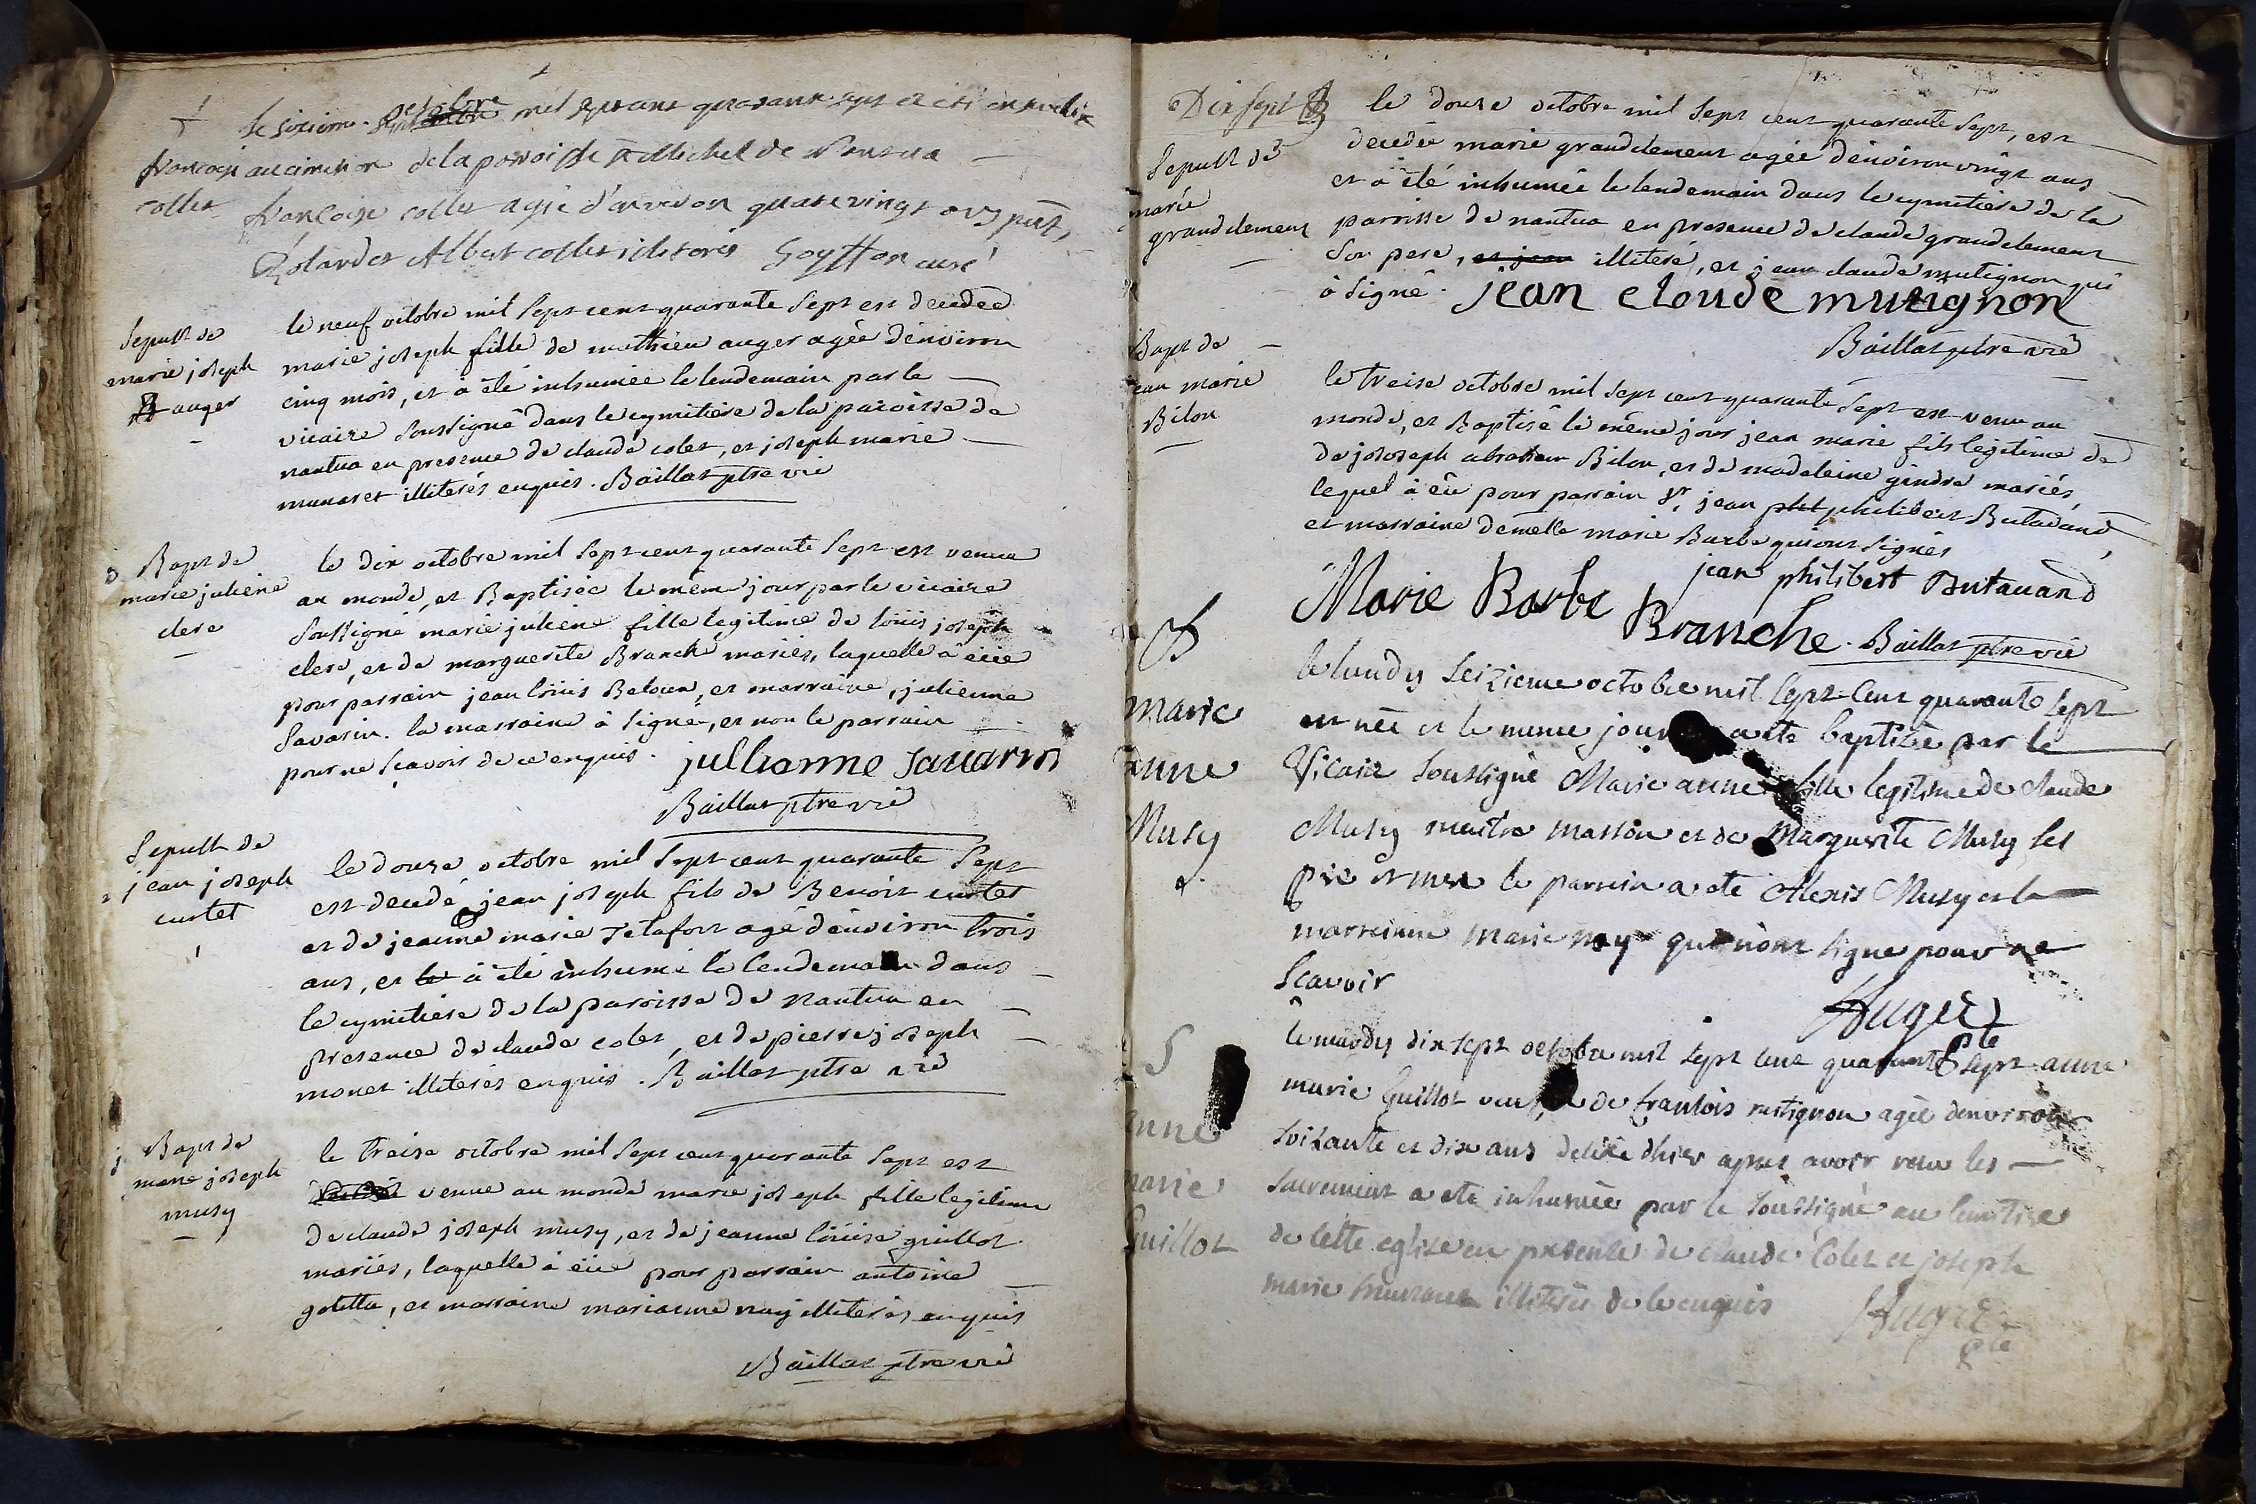 françoise
collet
le sixieme octobre mil sept cens quarante sept et été ensevelie
au cimetiere de la paroisse st Michel de Nantua
françoise collet agée d'anviron quatre vingt ans pnt,
et Albert collet illeterés Goyffon curé
Sepult de
marie joseph
auger
le neuf octobre mil sept cent quarante sept est decedée
marie joseph fille de mathieu auger agée d'environ
cinq mois, et à été inhumée le lendemain par le
vicaire soussigné dans le cymitiere de la paroisse de
nantua en presence de claude colet, et joseph marie
munaret illiterés enquis. Baillat ptre vic
Bapt de
marie juliene
clerc
le dix octobre mil sept cent quarante sept est venue
au monde, et Baptisée le même jour par le vicaire
soussigné marie juliene fille legitime de loüis joseph
clerc, et de marguerite Branche mariés, laquelle à eüe
pour parrain jean loüis Beloux, et marraine, julienne
Savarin. la marraine à signé, et non le parrain
pour ne sçavoir de ce enquis. jullianne savarin
Baillat ptre vic
Sepult de
jean joseph
curtet
le douze octobre mil sept cent quarante sept
est decedé jean joseph fils de Benoit curtet
et de jeanne marie jetafort agé d'environ trois
ans, et le à été inhumé le lendemain dans
le cymitiere de la paroisse de nantua en
presence de claude colet, et de pierre joseph
monet illiterés enquis. Baillat ptre vic
Bapt de
marie joseph
musy
le treise octobre mil sept cent quarante sept est
venue au monde marie joseph fille legitime
de claude joseph musy, et de jeanne loüise guillot
mariés, laquelle à eüe pour parrain antoine
goletta, et marraine marianne nay illiterés enquis
Baillat ptre vic
Dix sept
Sepult de
marie
grandclement
le douze octobre mil sept cent quarante sept, est
decedée marie grandclement agée d'environ vingt ans
et à été inhumée le lendemain dans le cymitiere de la
parroisse de nantua en presence de claude grandclement
son pere, et jean illiteré, et jean claude mutignon qui
à signé. jean cloude mutignon
Baillat ptre vic
Bapt de
jean marie
Bilon
le treise octobre mil sept cent quarante sept est venu au
monde, et Baptisé le même jour jean marie fils legitime de
de jososeph abraham Bilon, et de madeleine gindre mariés,
lequel à eü pour parrain Sr. jean phlet philibert Butavand,
et marraine demelle marie Barbe qui ont signés
jean philibert Butauand
Marie Barbe
Branche. Baillat ptre vic
B
Marie
Anne
Musy
le lundy seizieme octobre mil sept cent quarante sept
est née et le meme jour a ete baptisée par le
Vicaire soussigné Marie anne fille legitime de claude
Musy maitre masson et de Marguerite Musy ses
pere et mere le parrein a ete Alexis Musy et la
marreinne marie nay qui n'ont signe pour ne
scavoir
Augié
pte
S
anne
marie
Guillot
le mardy dix sept octobre mil sept cent quarante sept anne
marie Guillot veufve de francois mutignon agée denviron
soixante et dix ans decedée dhier apres avoir receu les
sacrement a ete inhumée par le soussigné au cimetiere
de cette eglise en presence de claude Colet et joseph
marie munaret illiterés de ce enquis Augié
pte